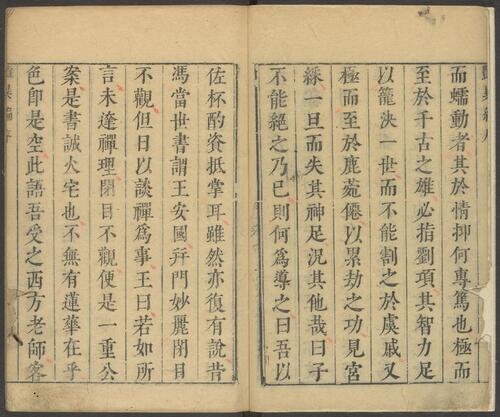 而蠕動者其於情抑何專篤也極而
至於千古之雄必指劉項其智力足
以籠決一世而不能割之於虞戚又
極而至於鹿菀僊以累劫之功見宮
綵一旦而失其神足況其他哉曰子
不能絕之乃已則何為導之曰吾以
佐杯酌資抵掌耳雖然亦復有說昔
馮當世書謂王安國弁門妙麗閉目
不觀但日以談禪爲事王曰若如所
言未達禪理閉目不觀便是一重公
案是書誠火宅也不無有蓮華在乎
色卽是空此語吾受之西方老師客